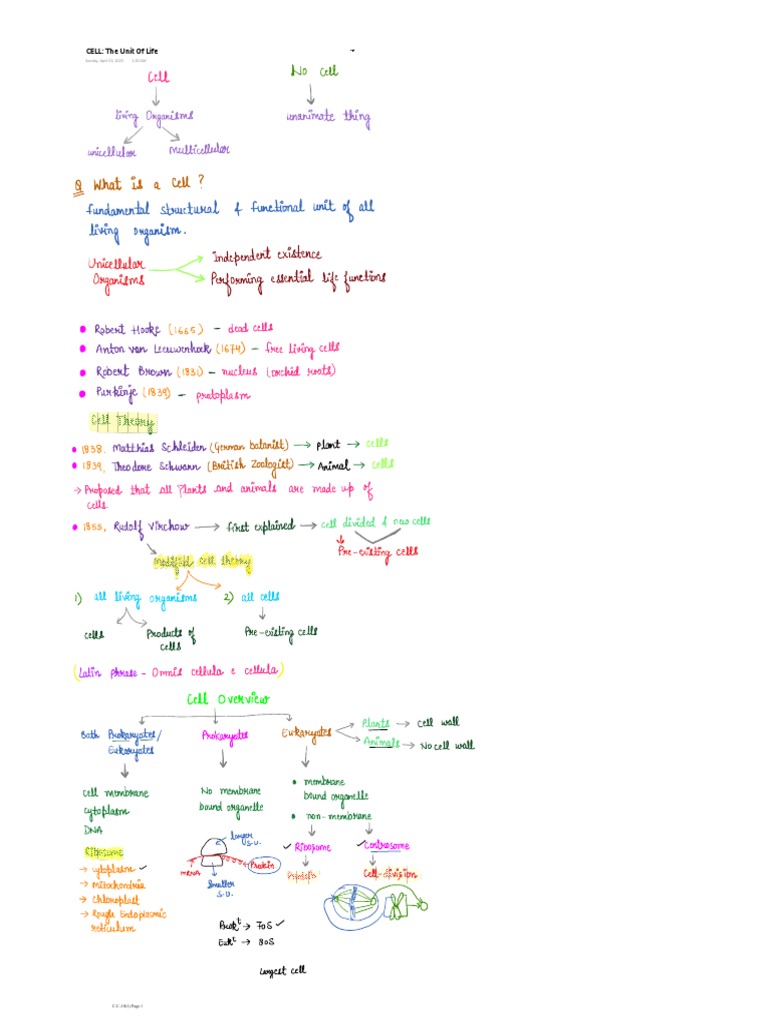 CELL: The Unit Of Life
Cell
No Cell
living Organisms
unanimate thing
unicellular
multicellular
Q What is a Cell ?
fundamental structural & functional unit of all
living organism.
Unicellular
Organisms
Independent existence
Performing essential life functions
Robert Hooke (1665) - dead cells
Anton van Leeuwenhoek (1674) - free living cells
Robert Brown (1831) - nucleus (orchid roots)
Purkinje (1839) - protoplasm
Cell Theory
1838. Matthias Schleiden (German botanist) → plant → cells
1839, Theodore Schwann (British Zoologist) → Animal → cells
→ Proposed that all Plants and animals are made up of
cells.
1855, Rudolf Virchow → first explained → cell divided & new cells
Pre-existing cells
Modified cell theory
1) all living organisms 2) all cells
cells
Products of
cells
Pre-existing cells
(Latin phrase - Omnis cellula e cellula)
Cell Overview
Both Prokaryotes/
Eukaryotes
Prokaryotes
Eukaryotes
Plants → cell wall
Animals → No cell wall
Cell membrane
cytoplasm
DNA
Ribosome
→ cytoplasm ✓
→ mitochondria
→ chloroplast
→ Rough Endoplasmic
reticulum
No membrane
bound organelle
larger
S.U.
mRNA
Protein
Smaller
S.U.
Prok^t → 70S ✓
Euk^t → 80S
• membrane
bound organelle
• non-membrane
✓ Ribosome
✓ Centrosome
Cell-division
largest cell